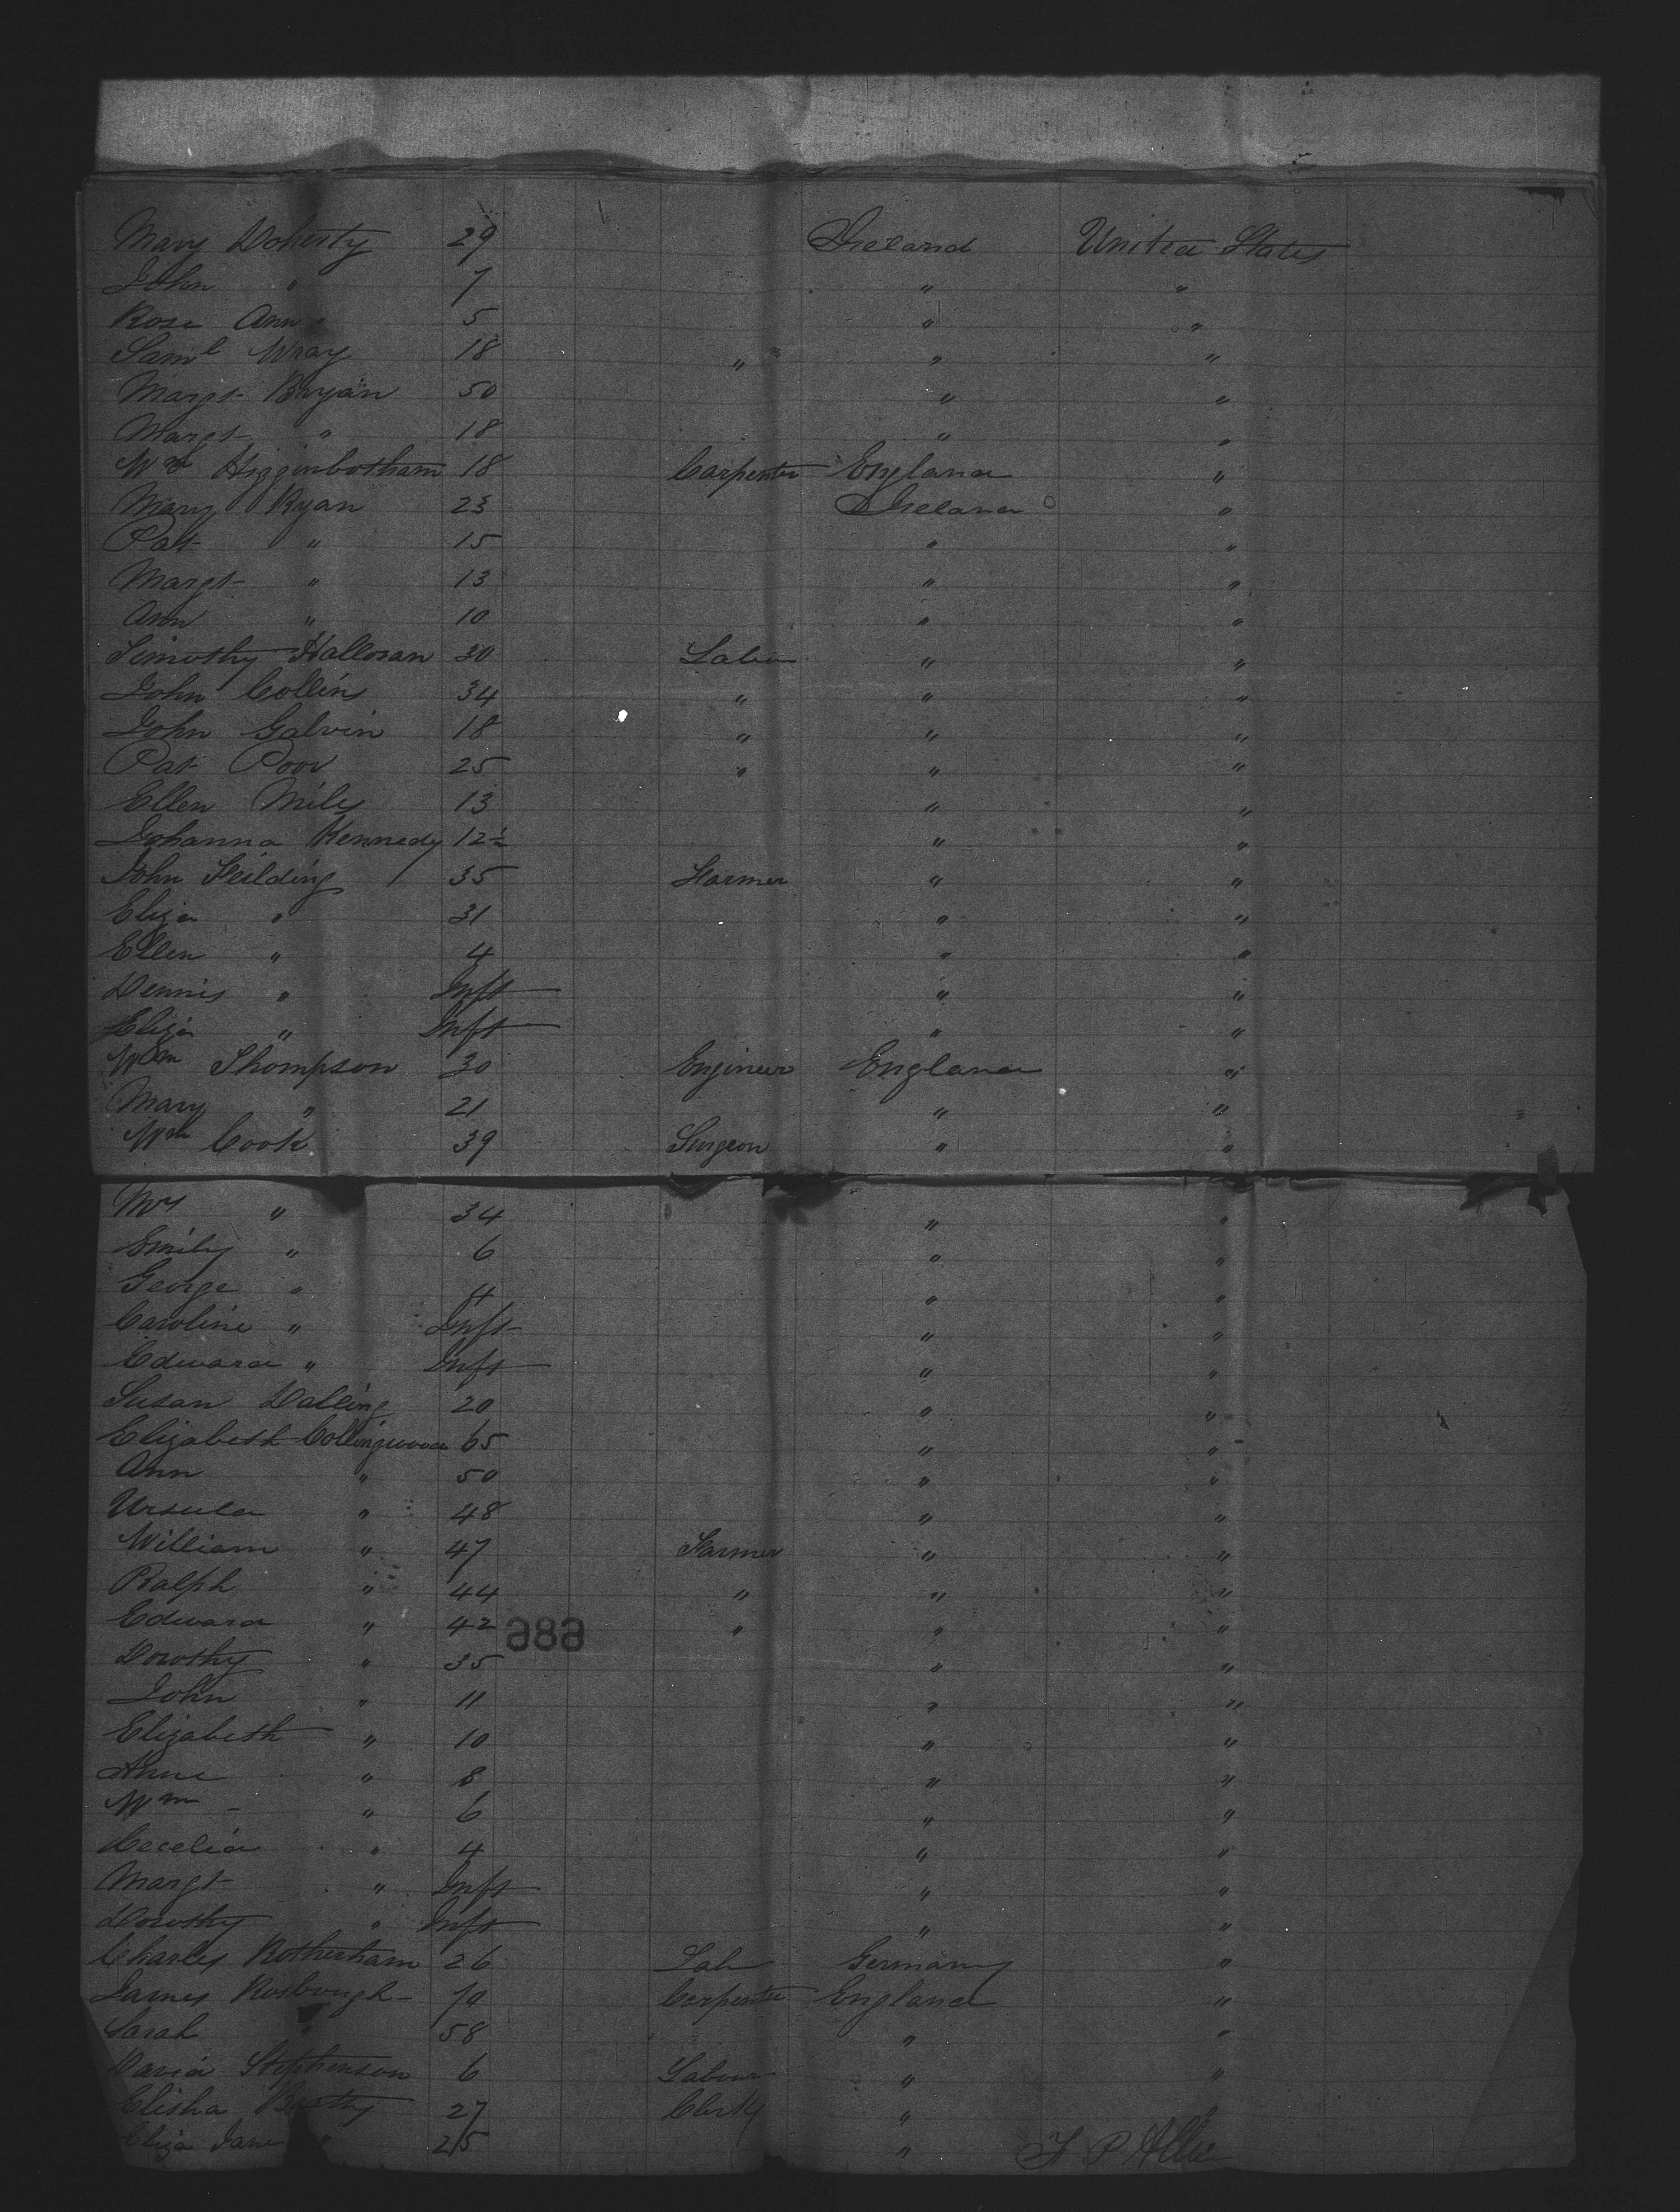 Mary Doherty 29 Ireland United States
John " 7 " "
Rose Ann " 5 " "
Saml Wray 18 " " "
Margt Bryan 50 " "
Margt " 18 " "
Wm Higginbotham 18 Carpenter England "
Mary Ryan 23 Ireland "
Pat " 15 " "
Margt " 13 " "
Ann " 10 " "
Timothy Halloran 30 Labor " "
John Collins 34 " " "
John Galvin 18 " " "
Pat Poor 25 " " "
Ellen Miles 13 " "
Johanna Kennedy 12½ " "
John Feilding 35 Farmer " "
Eliza " 31 " "
Ellen " 4 " "
Dennis " Inft " "
Eliza " Inft " "
Wm Thompson 30 Engineer England "
Mary " 21 " "
Wm Cook 39 Surgeon " "
Mrs " 34 " "
Emily " 6 " "
George " 4 " "
Caroline " Inft " "
Edward " Inft " "
Susan Dalling 20 " "
Elizabeth Collingwood 65 " "
Ann " 50 " "
Ursula " 48 " "
William " 47 Farmer " "
Ralph " 44 " " "
Edward " 42 " " "
Dorothy " 35 " "
John " 11 " "
Elizabeth " 10 " "
Anne " 8 " "
Wm " 6 " "
Cecelia " 4 " "
Margt " Inft " "
Dorothy " Inft " "
Charles Rotherham 26 Lab Germany "
James Rosbough Carpenter England "
Sarah " 58 " "
David Stephenson 6 Labour " "
Elisha 27 Clerk " "
Eliza Jane " 25 "